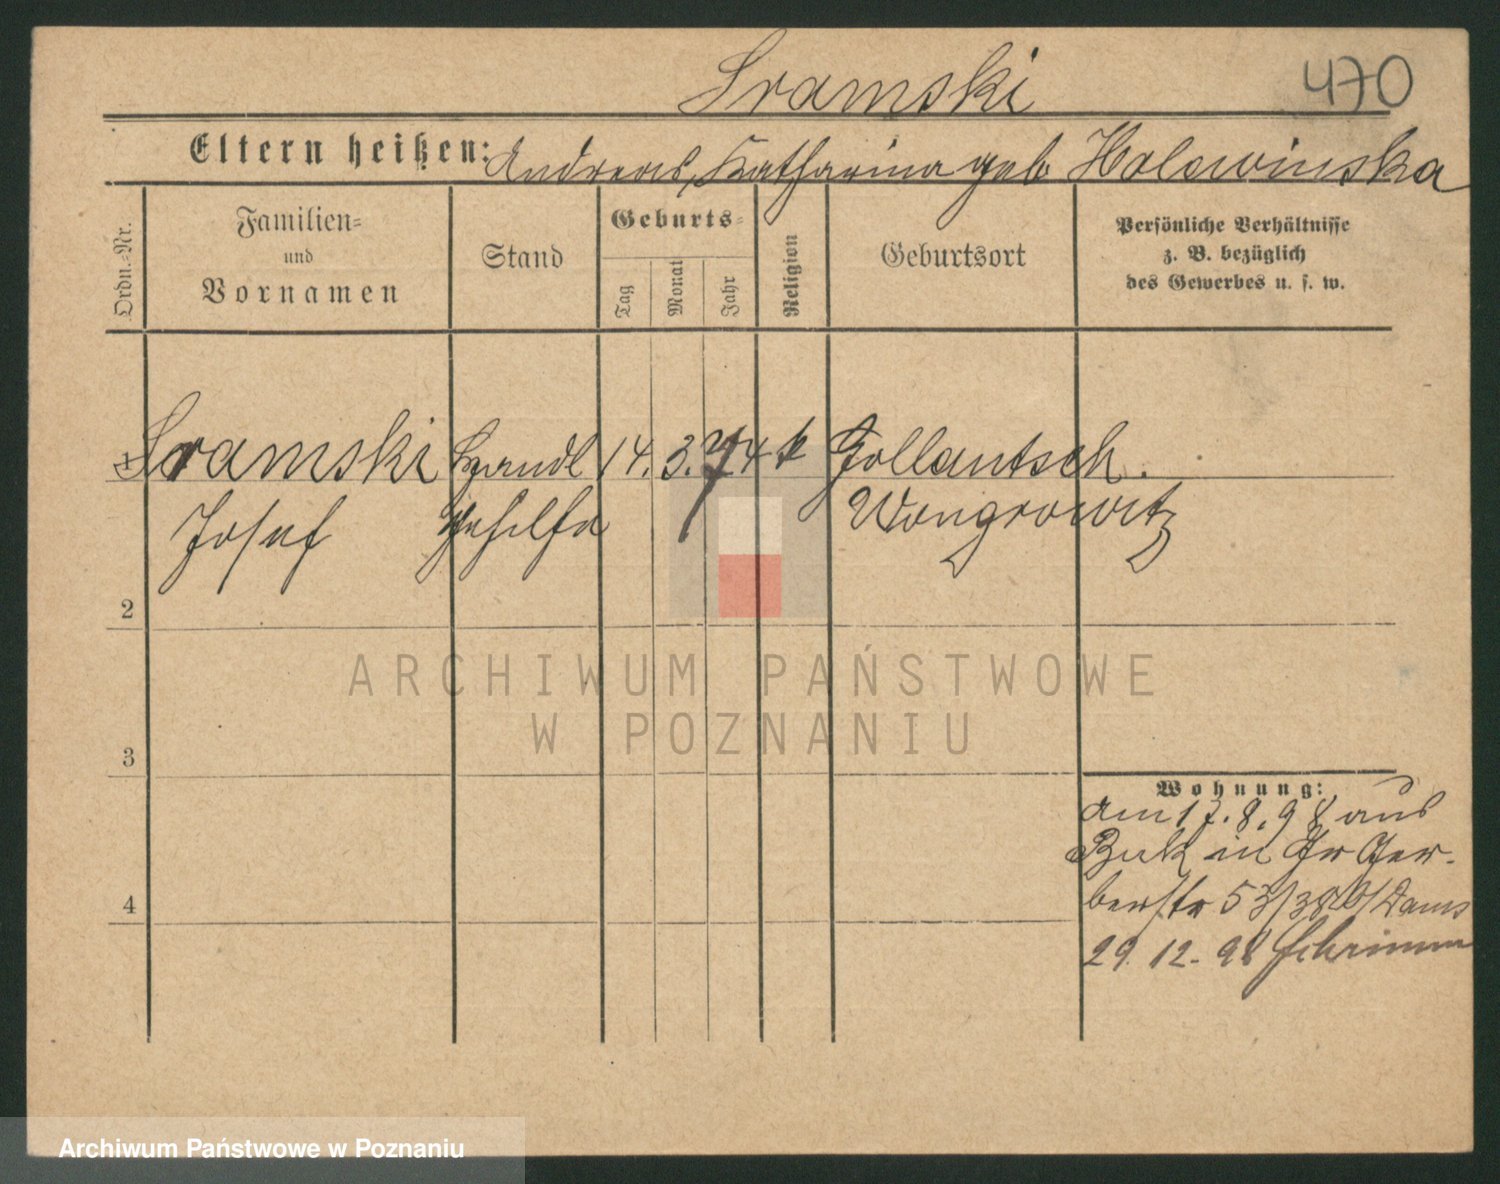 Sramski
470
Eltern heißen: Andreas, Katharina geb Holewinska
Ordn.-Nr.
Familien-
und
Vornamen
Stand
Geburts-
Tag
Monat
Jahr
Religion
Geburtsort
Persönliche Verhältnisse
z. B. bezüglich
des Gewerbes u. s. w.
1 Sramski Handl 14. 3. 74 k Gollantsch.
Josef Gehilfe Wongrowitz
2
3
4
Wohnung:
am 17. 8. 98 aus
Buk in Gr Ger-
berstr 53/38 b/Dams
29. 12. 98 Schrimm
ARCHIWUM PAŃSTWOWE
W POZNANIU
Archiwum Państwowe w Poznaniu